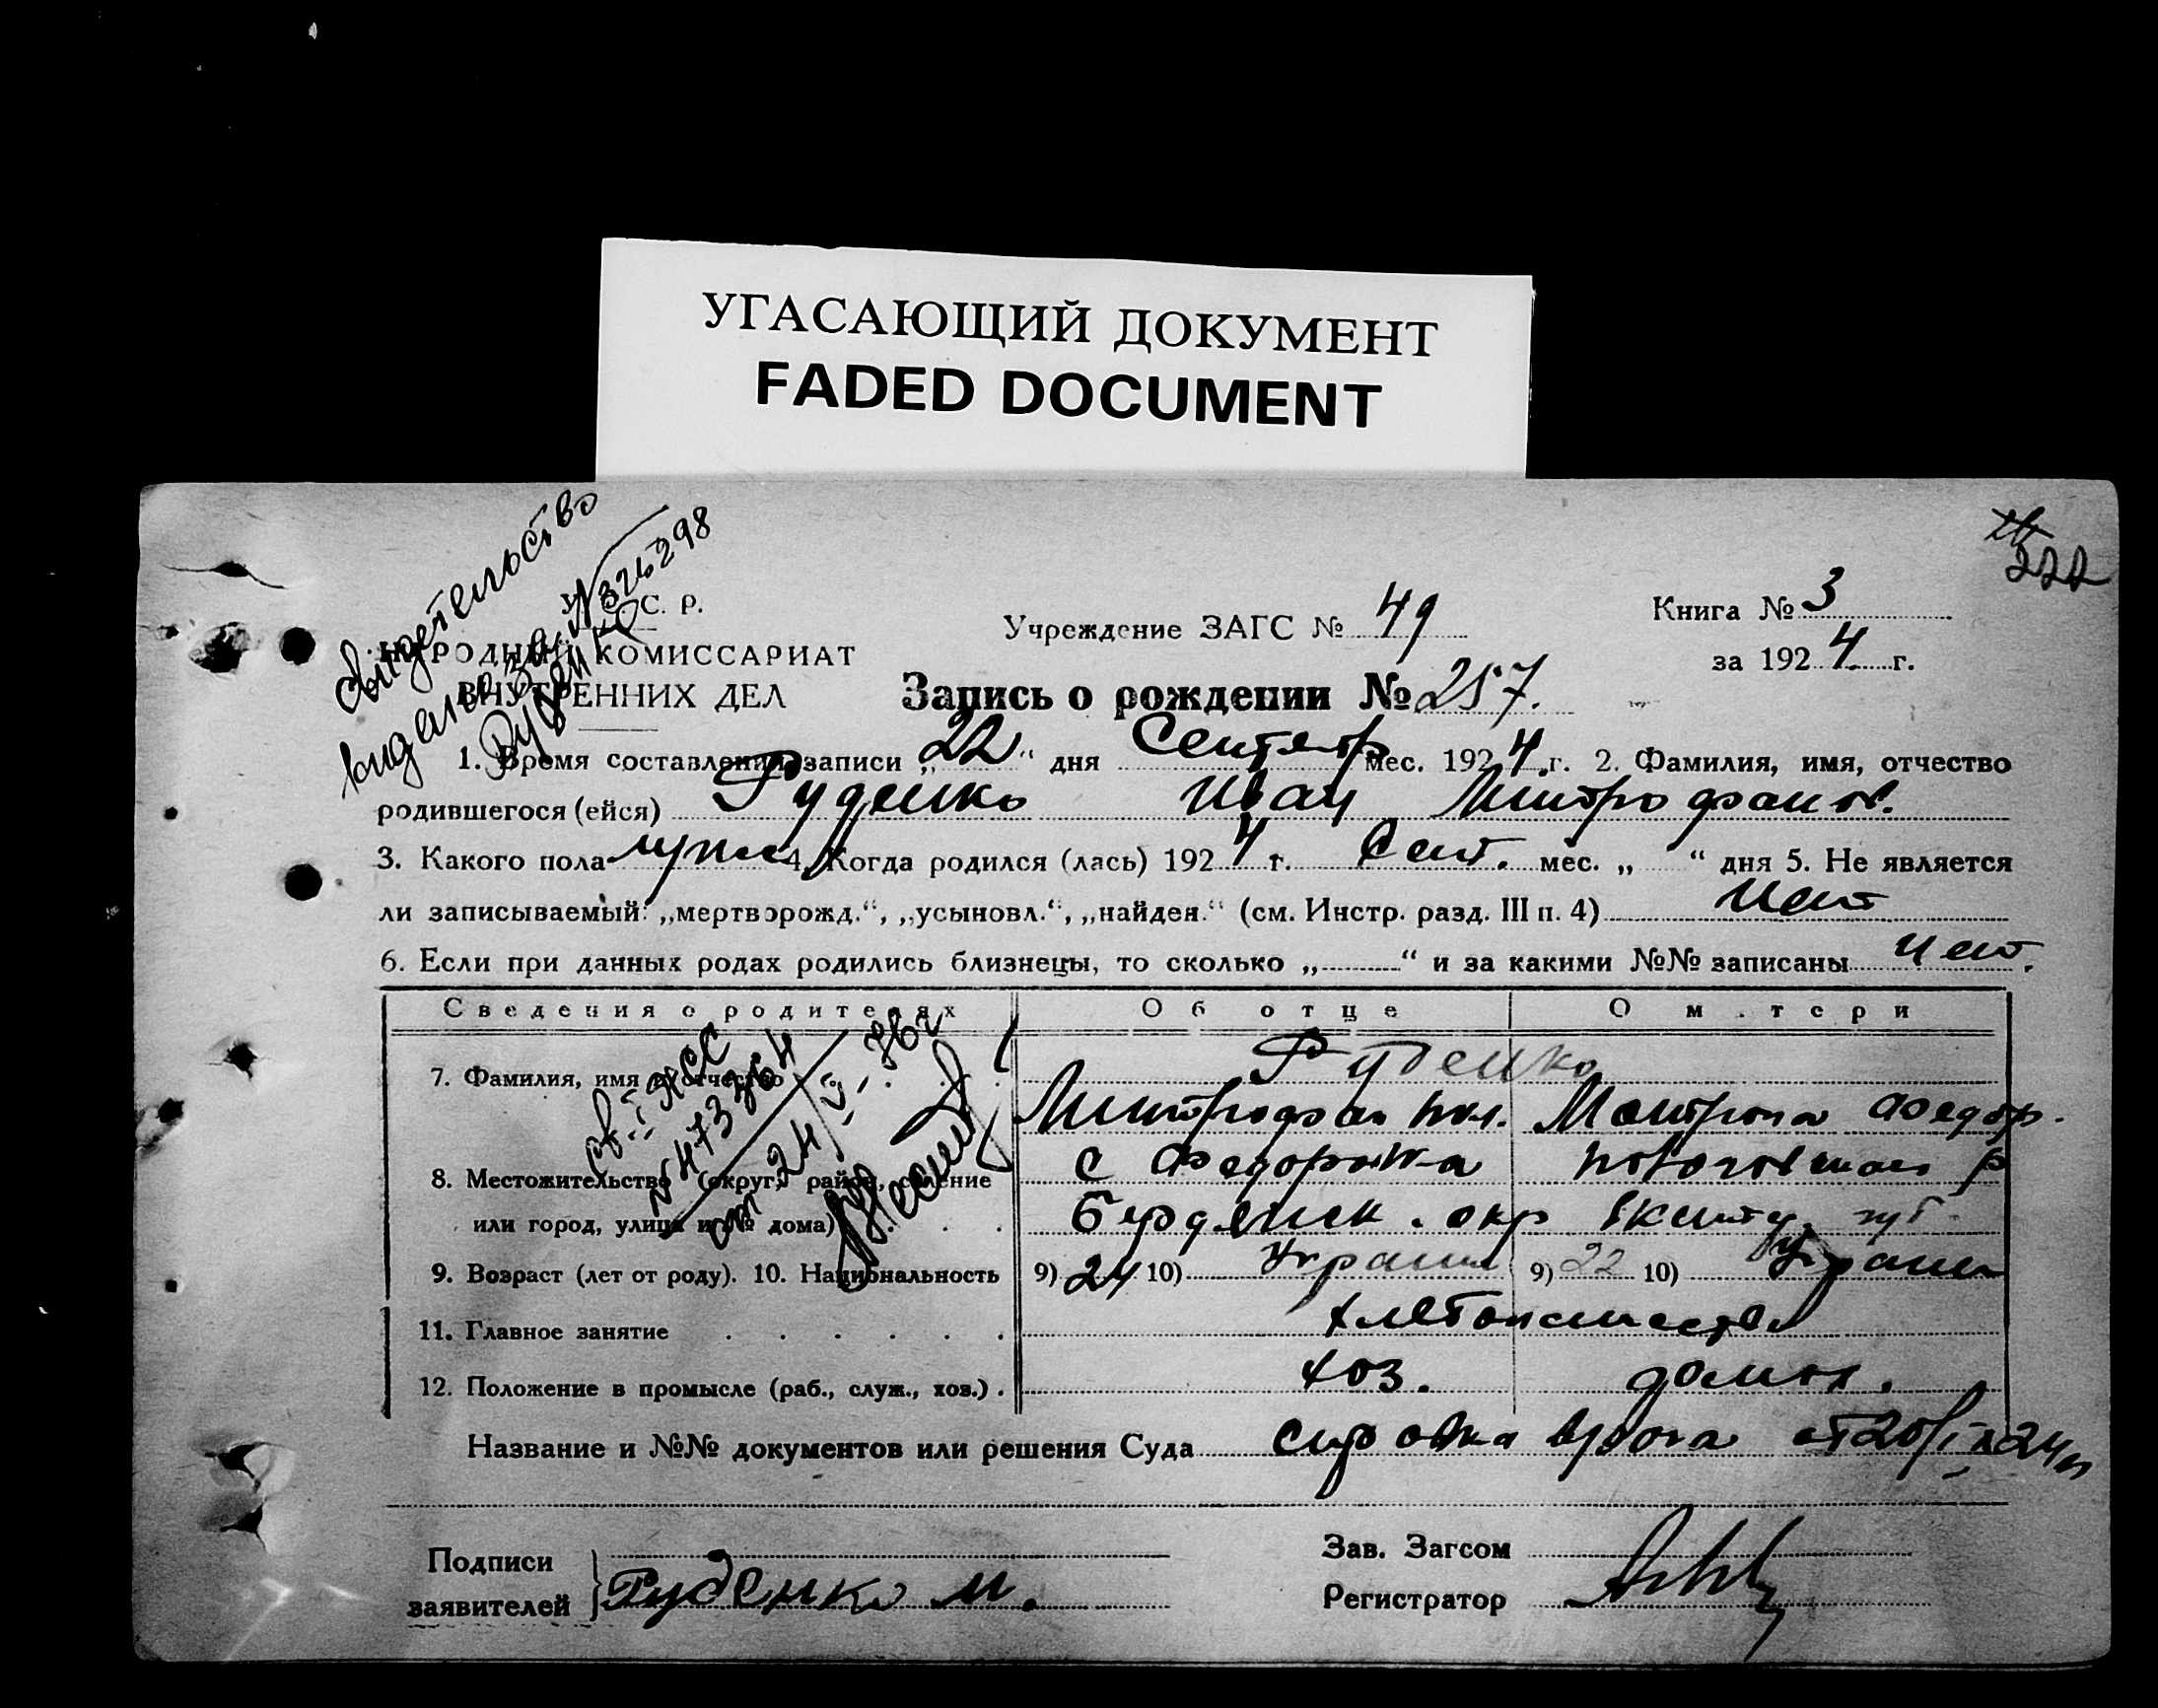 УГАСАЮЩИЙ ДОКУМЕНТ
FADED DOCUMENT
222
свидетельство
видано за № 326298
Руденко
У. С. С. Р.
НАРОДНЫЙ КОМИССАРИАТ
ВНУТРЕННИХ ДЕЛ
Учреждение ЗАГС № 49
Книга № 3
за 1924 г.
Запись о рождении № 257.
1. Время составления записи „22“ дня Сентябр мес. 1924 г. 2. Фамилия, имя, отчество
родившегося (ейся) Руденко Иван Митрофанов.
3. Какого пола муж 4. Когда родился (лась) 1924 г. Сент. мес. „ “ дня 5. Не является
ли записываемый: „мертворожд.“, „усыновл.“, „найден.“ (см. Инстр. разд. III п. 4) Нет
6. Если при данных родах родились близнецы, то сколько „ “ и за какими №№ записаны нет.
Сведения о родителях Об отце О матери
7. Фамилия, имя и отчество Руденко
Митрофан Матрона Федор.
8. Местожительство (округ, район, селение с Федоровка р
или город, улица и № дома) Бердянск. окр губ.
9. Возраст (лет от роду). 10. Национальность 9) 24 10) Украин 9) 22 10) Украин
№ 473364
от 24/V-36г
11. Главное занятие хлебопашество
12. Положение в промысле (раб., служ., хоз.) . хоз. домох.
Название и №№ документов или решения Суда справка врача от
Подписи
заявителей Руденко М.
Зав. Загсом
Регистратор